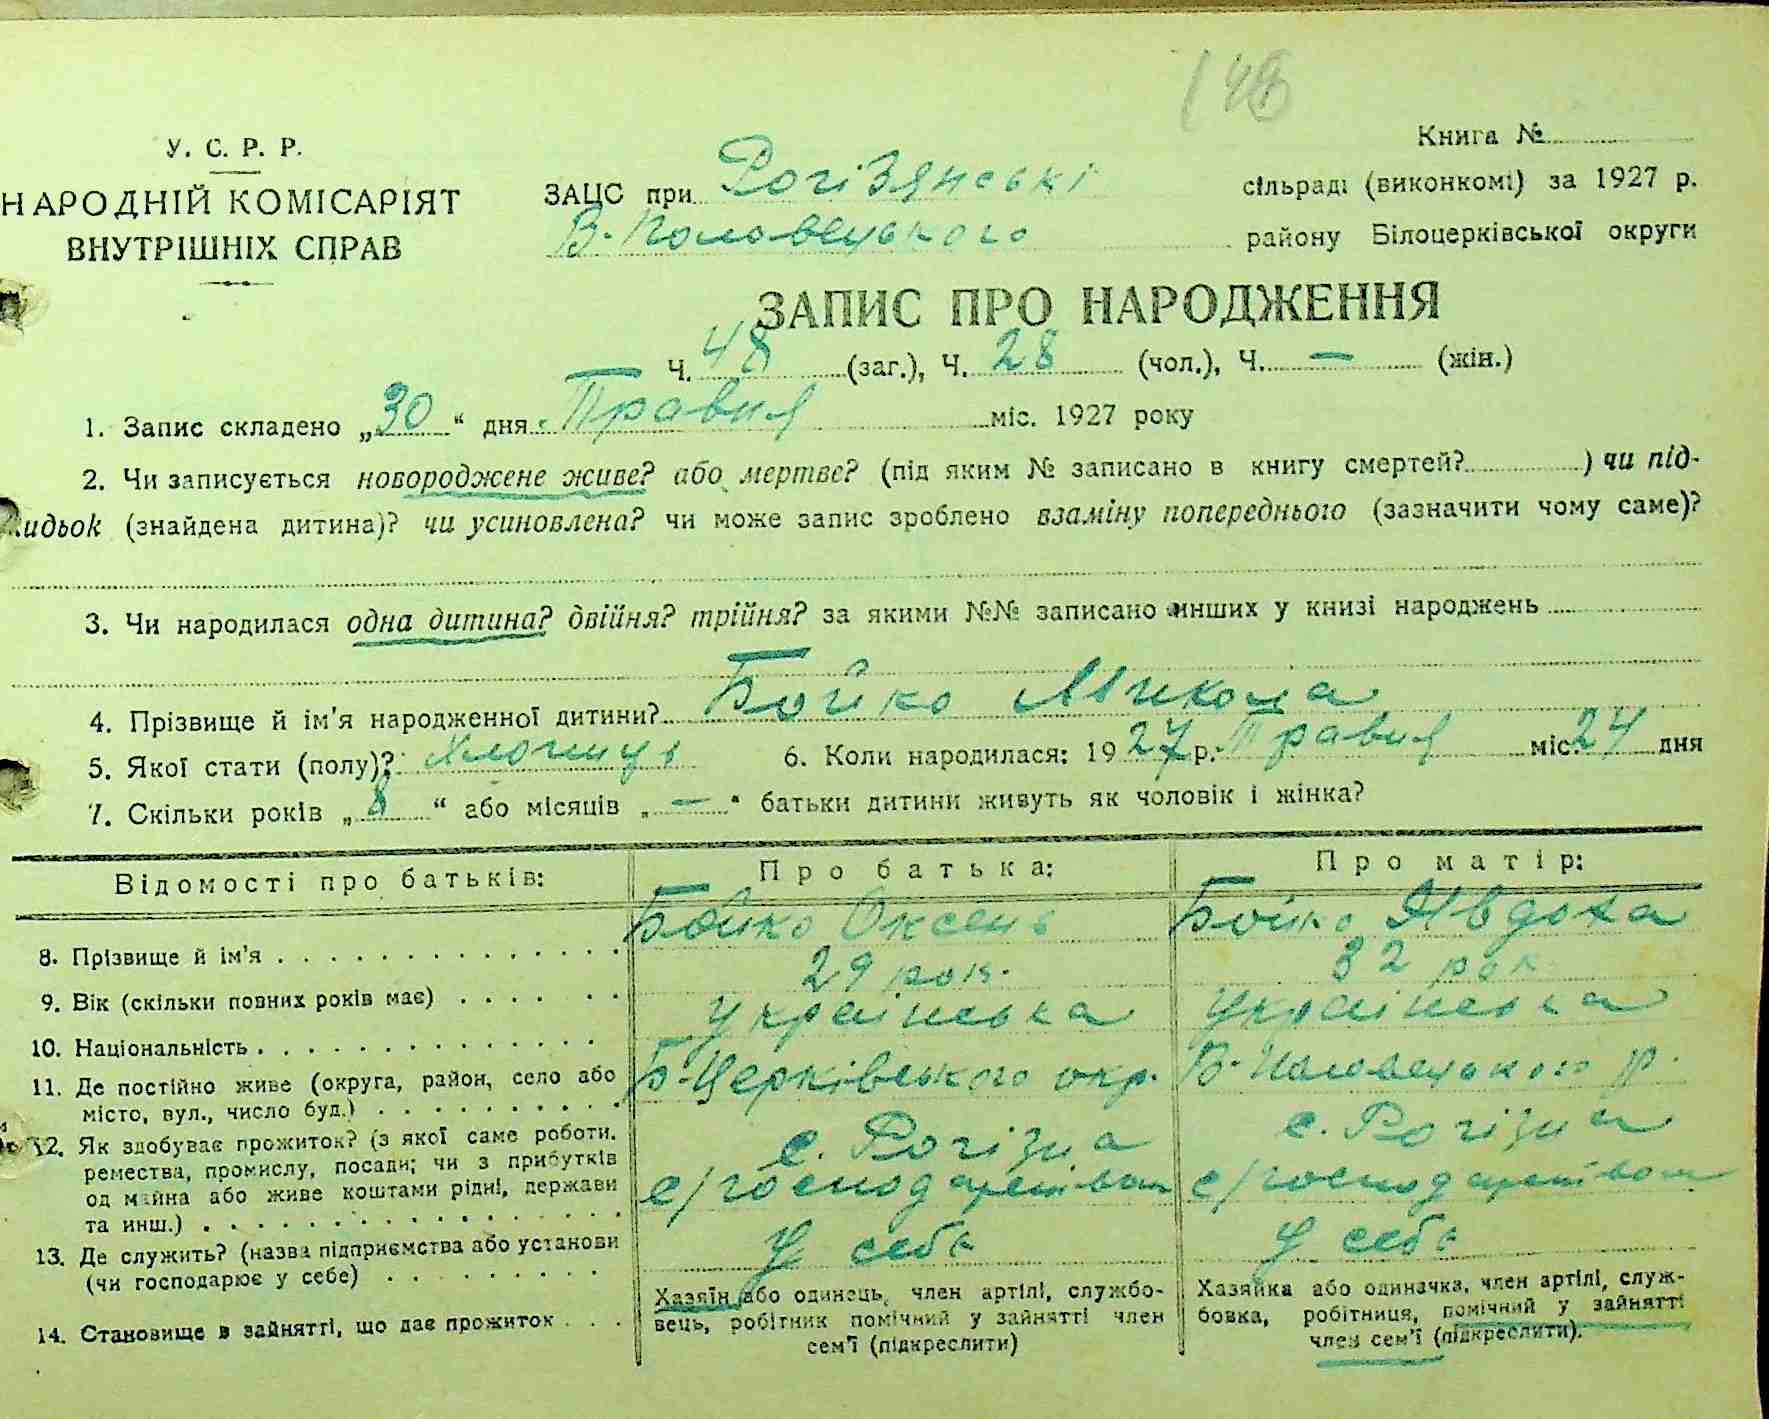 148
У. С. Р. Р.
НАРОДНІЙ КОМІСАРІЯТ
ВНУТРІШНІХ СПРАВ
Книга №
ЗАЦС при Рогізянські сільраді (виконкомі) за 1927 р.
В-Половецького району Білоцерківської округи
ЗАПИС ПРО НАРОДЖЕННЯ
Ч. 48 (заг.), Ч. 28 (чол.), Ч. — (жін.)
1. Запис складено „30“ дня Травня міс. 1927 року
2. Чи записується новороджене живе? або мертве? (під яким № записано в книгу смертей? ) чи під-
кидьок (знайдена дитина)? чи усиновлена? чи може запис зроблено взаміну попереднього (зазначити чому саме)?
3. Чи народилася одна дитина? двійня? трійня? за якими №№ записано инших у книзі народжень
4. Прізвище й ім'я народженної дитини? Бойко Микола
5. Якої стати (полу)? Хлопець 6. Коли народилася: 1927 р. Травня міс. 24 дня
7. Скільки років „8“ або місяців „—“ батьки дитини живуть як чоловік і жінка?
Відомості про батьків: Про батька: Про матір:
8. Прізвище й ім'я Бойко Оксень Бойко Явдоха
9. Вік (скільки повних років має) 29 рок. 32 рок
10. Національність Українська Українська
11. Де постійно живе (округа, район, село або Б-Церківського окр. В-Половецького р.
місто, вул., число буд.) с. Рогізна с. Рогізна
12. Як здобуває прожиток? (з якої саме роботи, с/господарством с/господарством
ремества, промислу, посади; чи з прибутків
од майна або живе коштами рідні, держави
та инш.)
13. Де служить? (назва підприємства або установи У себе У себе
(чи господарює у себе)
14. Становище в зайнятті, що дає прожиток
Хазяїн або одинець, член артілі, службо-
вець, робітник помічний у зайнятті член
сем'ї (підкреслити)
Хазяйка або одиначка, член артілі, служ-
бовка, робітниця, помічний у зайнятті
член сем'ї (підкреслити).